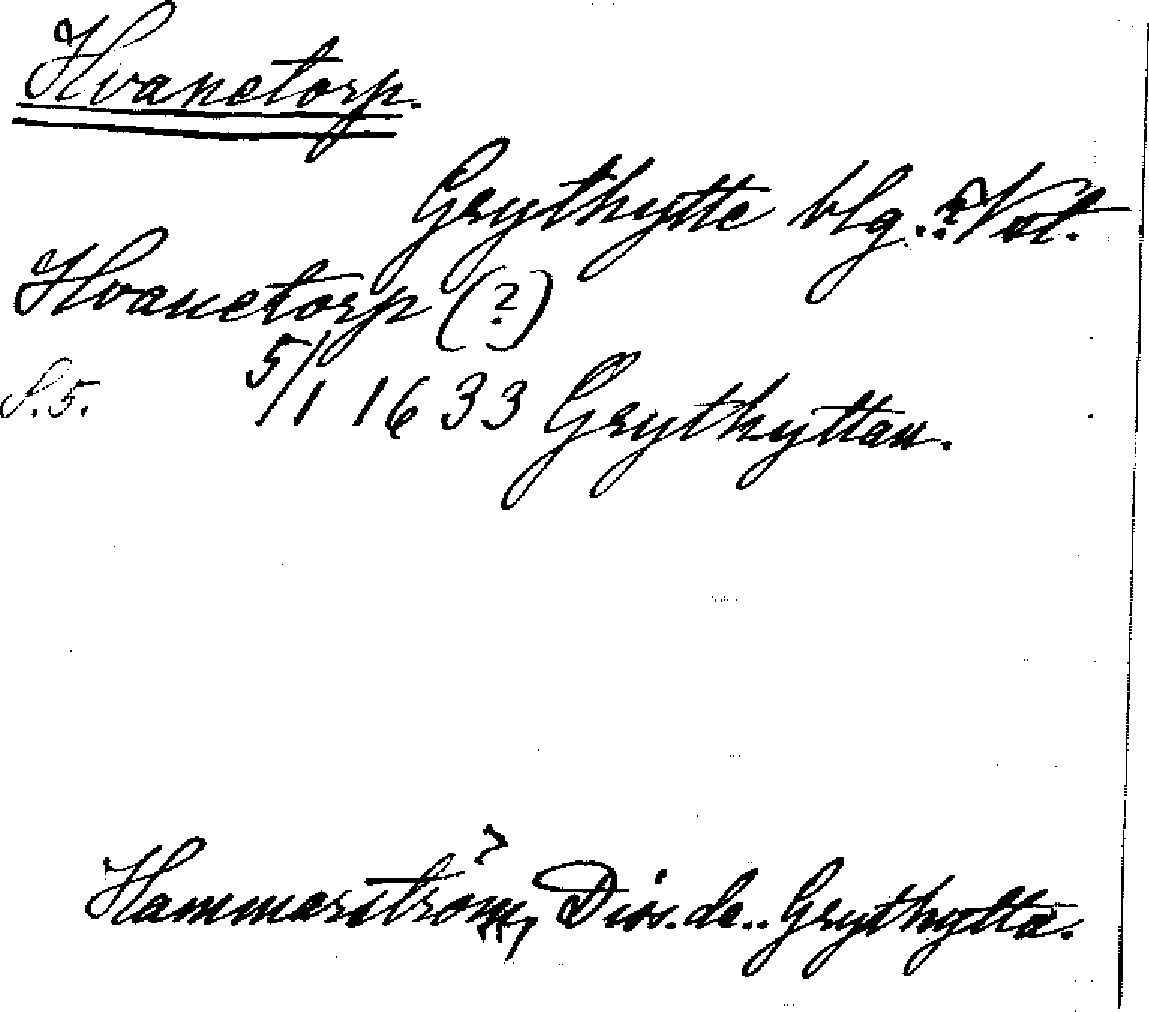 Hvanetorp.
Grythytte blg. Vst.
Hvanetorp (?)
S.5. 5/1 1633 Grythyttan.
Hammarström, Diss. de.. Grythytta.